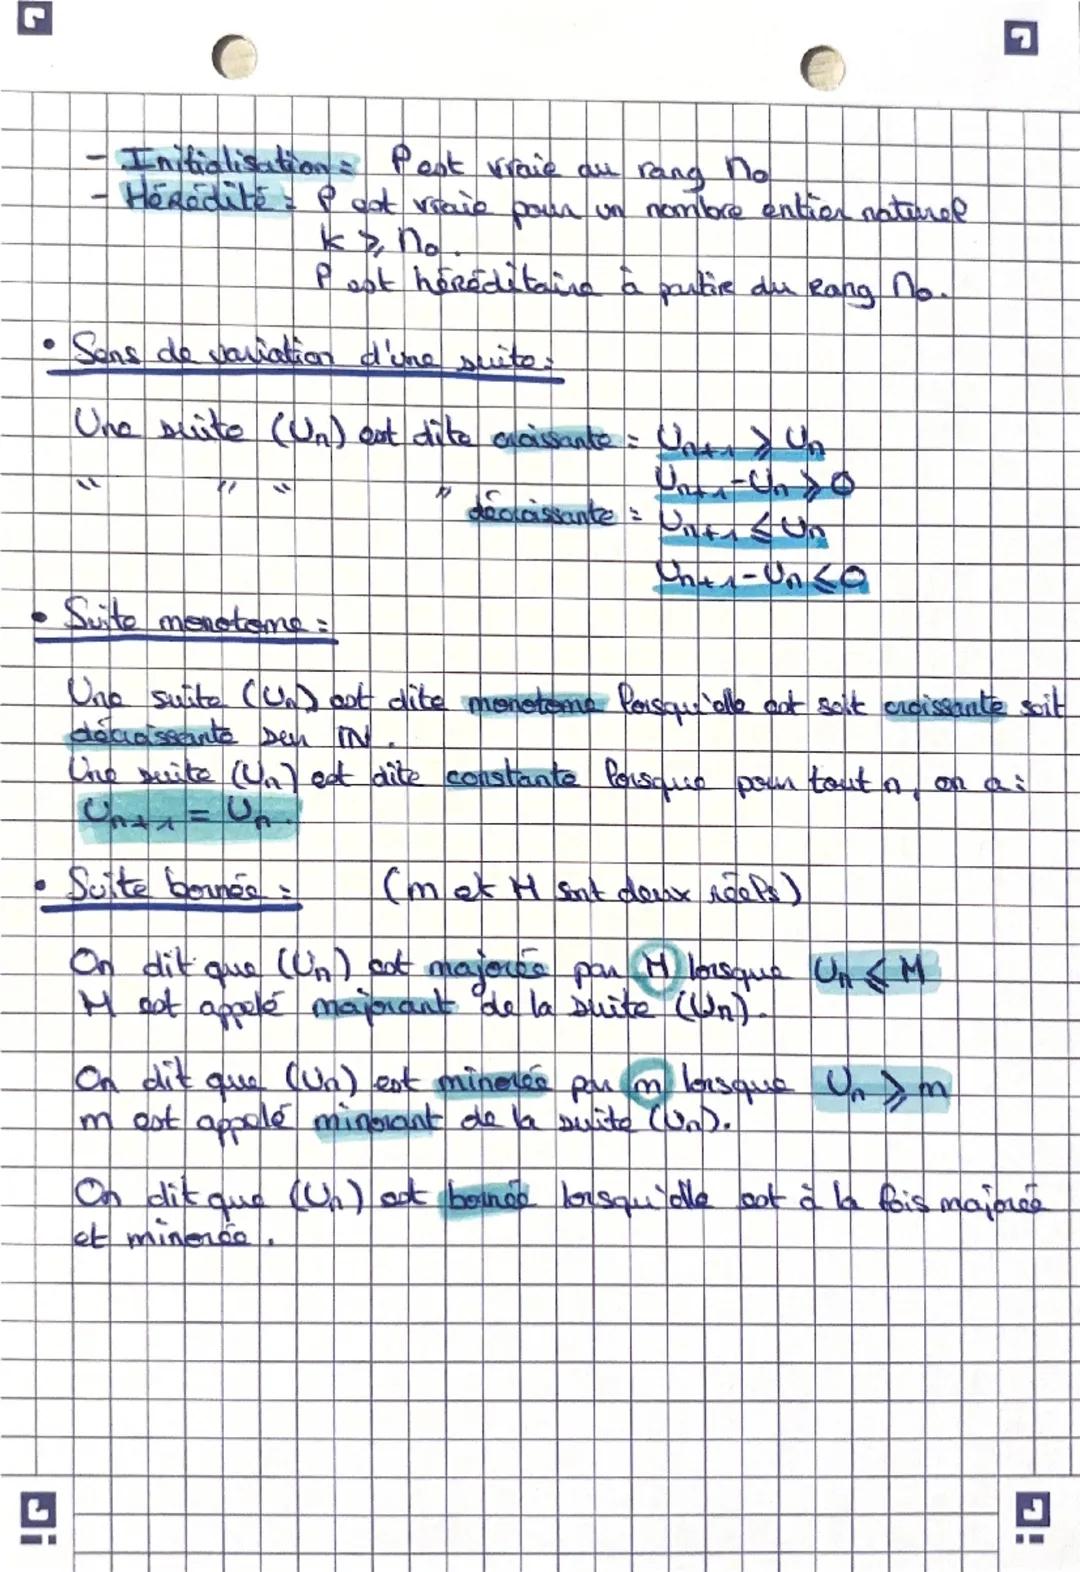 - Initialisation : P est vraie au rang n₀
- Hérédité : P est vraie pour un nombre entier naturel
k ⩾ n₀.
P est héréditaire à partir du Rang n₀.
• Sens de variation d'une suite :
Une suite (Un) est dite croissante : Un+1 ⩾ Un
" " " " Un+1-Un ⩾ 0
décroissante : Un+1 ⩽ Un
Un+1-Un ⩽ 0
• Suite monotome :
Une suite (Un) est dite monotome lorsqu'elle est soit croissante soit
décroissante sur IN.
Une suite (Un) est dite constante lorsque pour tout n, on a :
Un+1 = Un.
• Suite bornée : (m et M sont deux réels)
On dit que (Un) est majorée par M lorsque Un ⩽ M
M est appelé majorant de la suite (Un).
On dit que (Un) est minorée par m lorsque Un ⩾ m
m est appelé minorant de la suite (Un).
On dit que (Un) est bornée lorsqu'elle est à la fois majorée
et minorée.